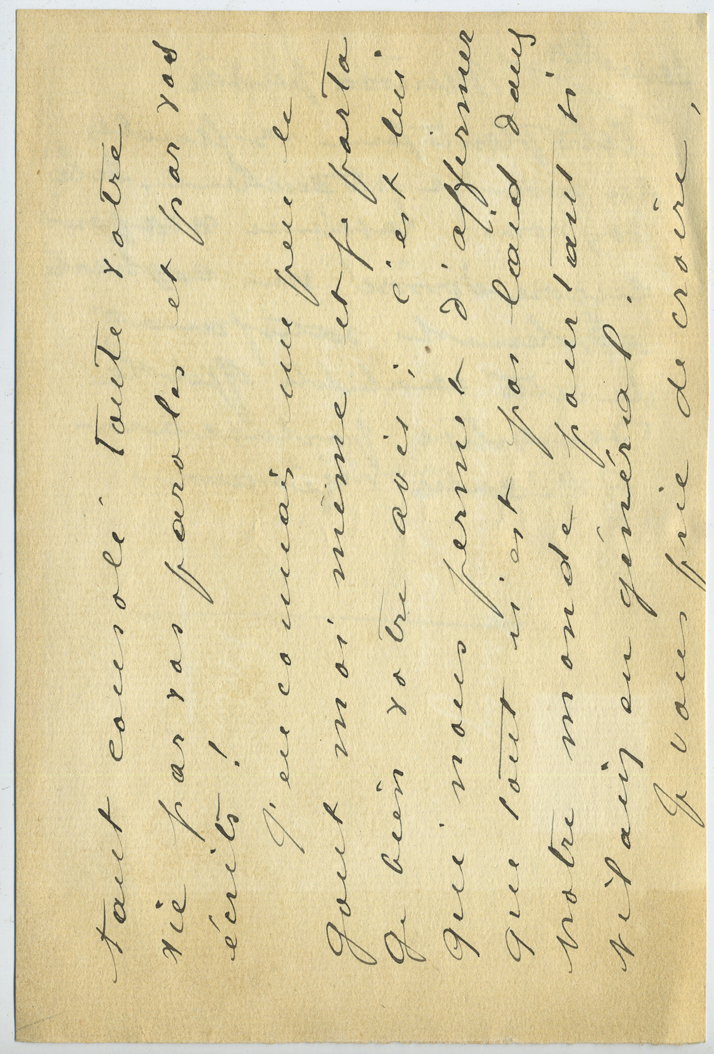 tant consolé toute votre
vie par vos paroles et par vos
écrits!
J'en connais un peu le
gout moi même et je parta
ge bien votre avis; c'est lui
qui nous permet d'affirmer
que tout n'est pas laid dans
notre monde pourtant si
vilain en général.
Je vous prie de croire,